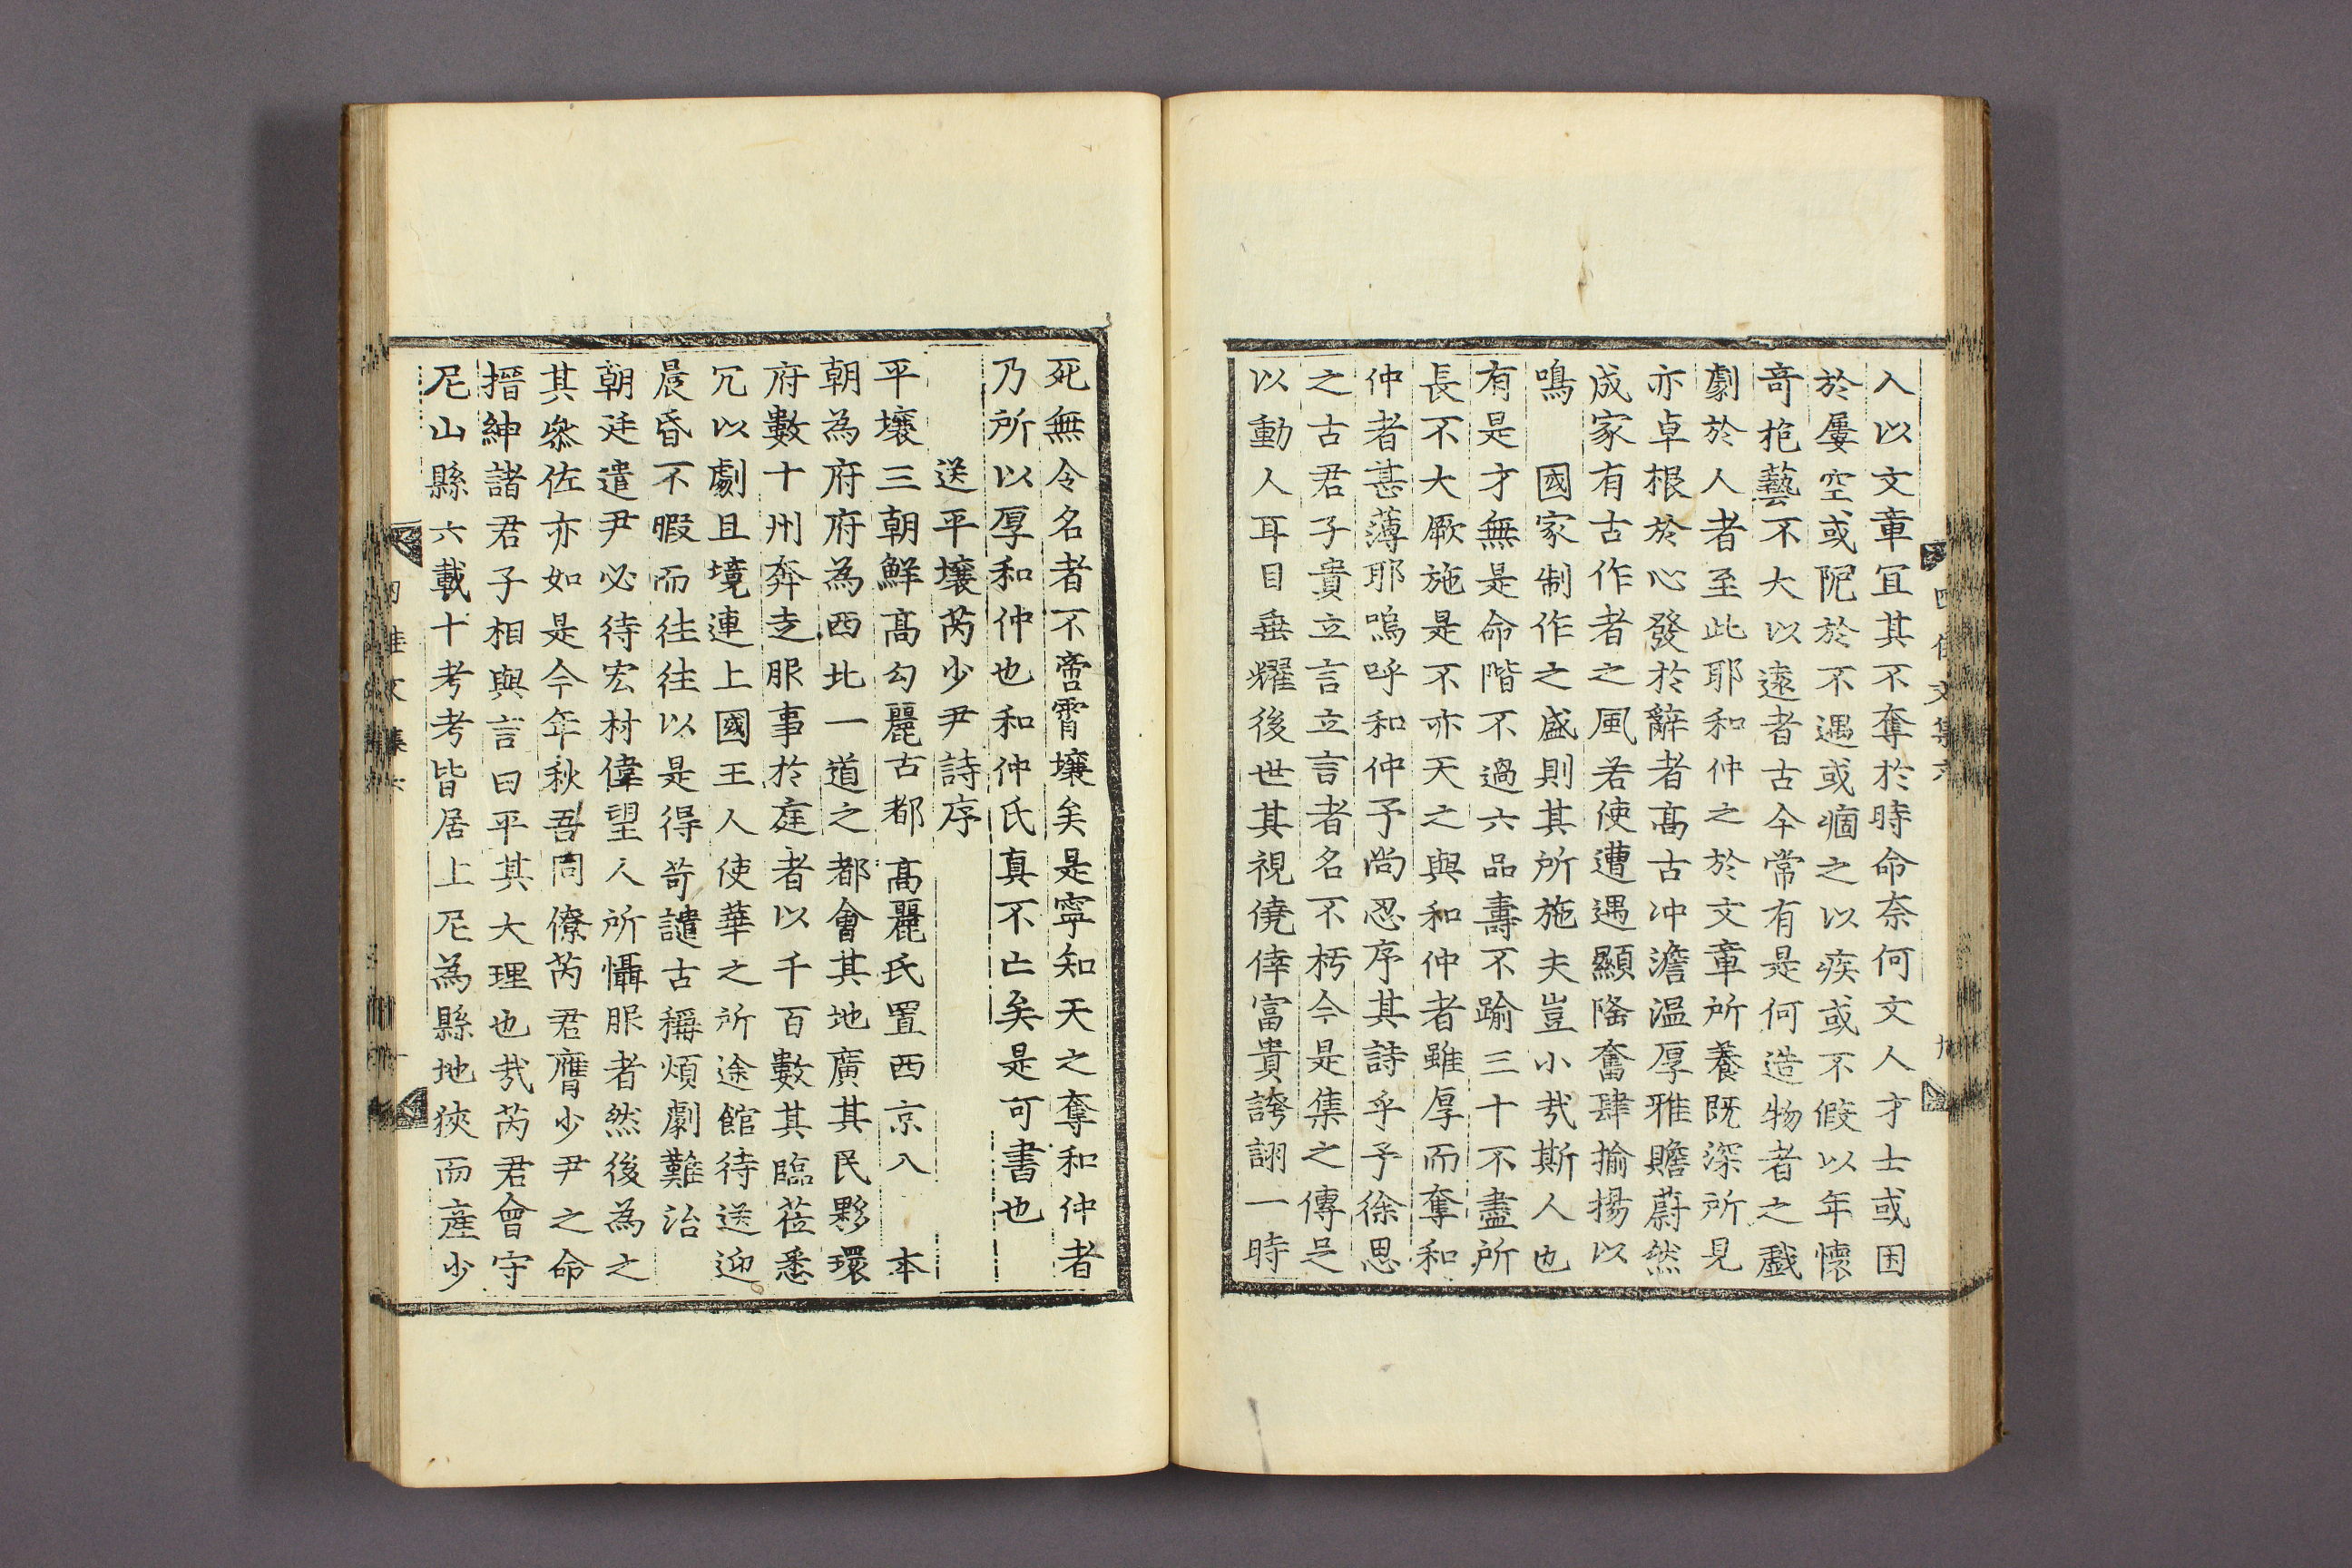 入以文章冝其不奪於時命奈何文人才士或困
於屢空或阨於不遇或痼之以疾或不假以年懷
竒抱藝不大以遠者古今常有是何造物者之戲
劇於人者至此耶和仲之於文章所養既深所見
亦卓根於心發於辭者高古冲澹温厚雅贍蔚然
成家有古作者之風若使遭遇顯隆奮肆揄揚以
鳴　國家制作之盛則其所施夫豈小㢤斯人也
有是才無是命階不過六品壽不踰三十不盡所
長不大厥施是不亦天之與和仲者雖厚而奪和
仲者甚薄耶嗚呼和仲予尚忍序其詩乎予徐思
之古君子貴立言立言者名不朽今是集之傳足
以動人耳目垂耀後世其視僥倖富貴誇詡一時
四佳文集六
死無令名者不啻霄壤矣是寧知天之奪和仲者
乃所以厚和仲也和仲氏真不亡矣是可書也
送平壤芮少尹詩序
平壤三朝鮮高勾麗古都高麗氏置西京入　本
朝為府府為西北一道之都會其地廣其民夥環
府數十州奔走服事於庭者以千百數其臨莅悉
冗以劇且境連上國王人使華之所途館待送迎
晨昏不暇而往往以是得苛譴古稱煩劇難治
朝廷遣尹必待宏材偉望人所懾服者然後為之
其叅佐亦如是今年秋吾同僚芮君膺少尹之命
搢紳諸君子相與言曰平其大理也㢤芮君曾守
尼山縣六載十考考皆居上尼為縣地狹而産少